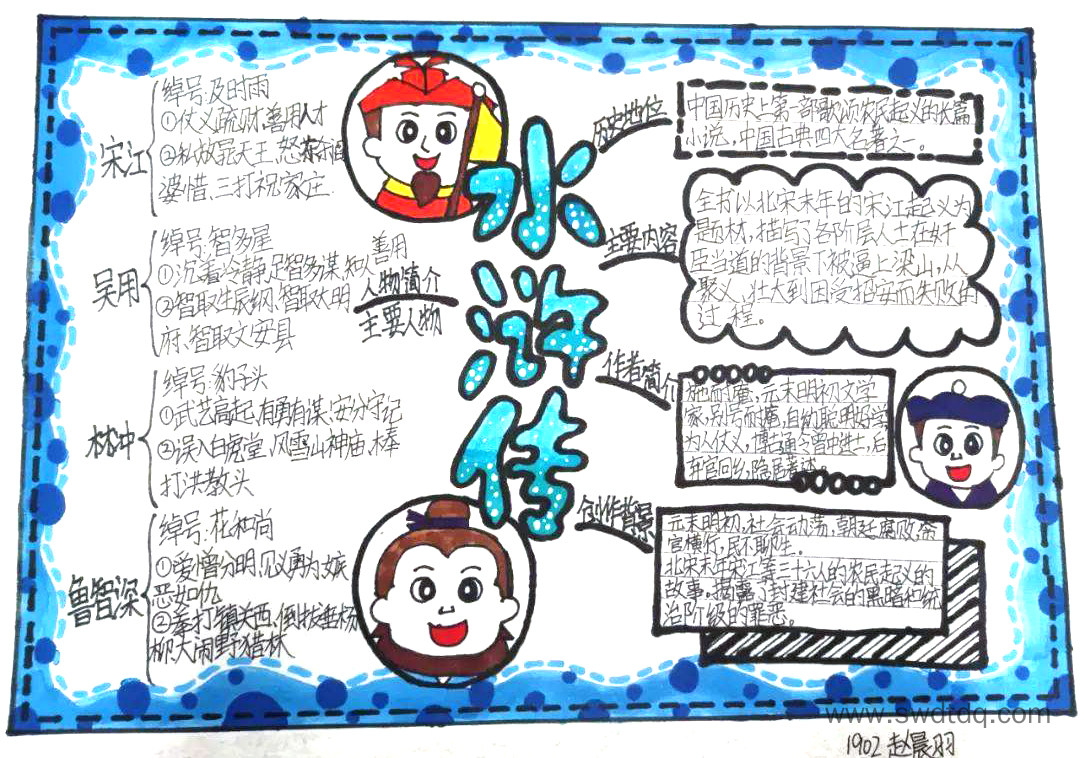 水浒传
宋江
绰号:及时雨
①仗义疏财,善用人才
②私放晁天王,怒杀阎
婆惜,三打祝家庄.
吴用
绰号:智多星
①沉着冷静,足智多谋,知人善用
②智取生辰纲,智取大明
府,智取文安县
林冲
绰号:豹子头
①武艺高起,有勇有谋,安分守记
②误入白虎堂,风雪山神庙,棒
打洪教头
鲁智深
绰号:花和尚
①爱憎分明,见义勇为,嫉
恶如仇
②拳打镇关西,倒拔垂杨
柳,大闹野猪林
人物简介
主要人物
历史地位
中国历史上第一部歌颂农民起义的长篇
小说,中国古典四大名著之一。
主要内容
全书以北宋末年的宋江起义为
题材,描写了各阶层人士在奸
臣当道的背景下被逼上梁山,从
聚义、壮大到因受招安而失败的
过程。
作者简介
施耐庵,元末明初文学
家,别号耐庵,自幼聪明好学
为人仗义,博古通今,曾中进士,后
弃官回乡,隐居著述。
创作背景
元末明初,社会动荡,朝廷腐败,贪
官横行,民不聊生。
北宋末年宋江等三十六人的农民起义的
故事。揭露了封建社会的黑暗和统
治阶级的罪恶。
www.swdtdq.com
1902 赵晨羽